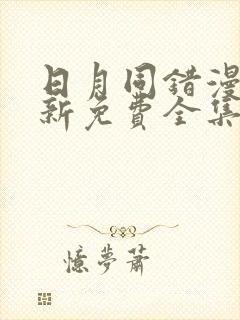 日月同错漫
新免费全集
憶夢蕭